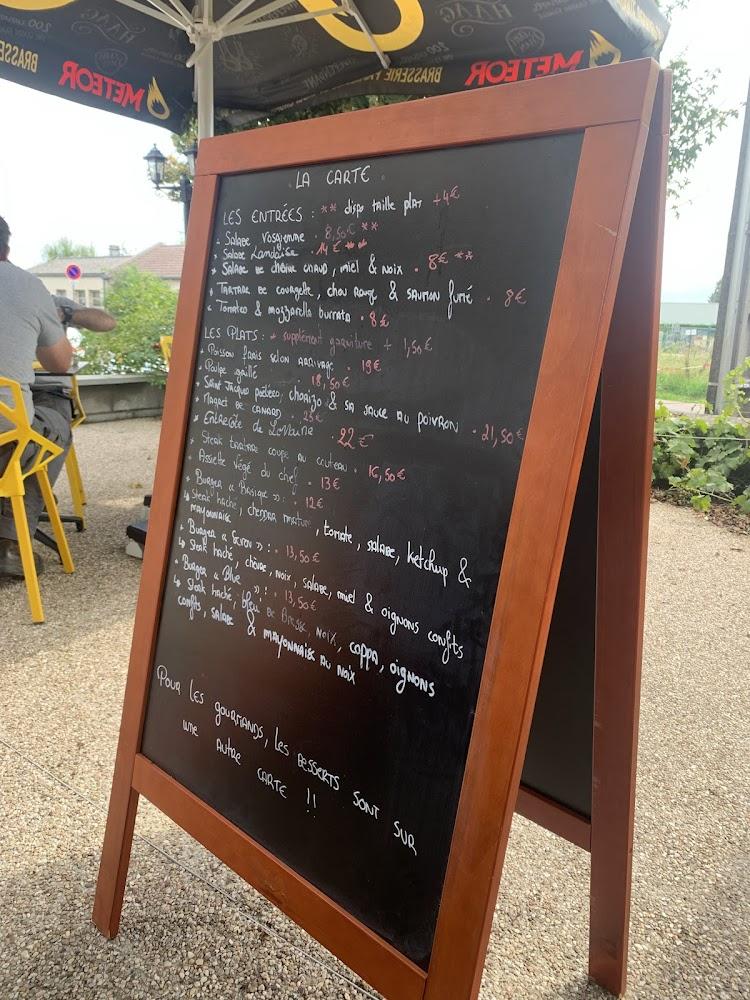 BRASSE
METEOR
200
HAAG
BRASSERIE
METEOR
LA CARTE
LES ENTRÉES : ** dispo taille plat +4€
- Salade Vosgienne . 8,50€ **
- Salade Landaise . 14€ **
* Salade de chèvre chaud, miel & noix . 8€ **
- Tartare de courgette, chou rouge & saumon fumé . 9€
- Tomates & mozzarella burrata . 8€
LES PLATS : * supplément garniture + 1,50€
* Poisson frais selon arrivage . 19€
* Poulpe grillé . 18,50€
* Saint Jacques poêlées, chorizo & sa sauce au poivron . 21,50€
* Magret de canard . 25€
* Entrecôte de Lorraine . 22€
* Steak tartare coupé au couteau . 16,50€
- Assiette végé du chef . 13€
* Burger « Basique » : . 12€
↳ Steak haché, cheddar mature, tomate, salade, ketchup &
mayonnaise
* Burger « » : . 13,50€
↳ Steak haché, chèvre, noix, salade, miel & oignons confits
* Burger « Blue » : . 13,50€
↳ Steak haché, bleu de Bresse, noix, coppa, oignons
confits, salade & mayonnaise au noix
Pour les gourmands, les desserts sont sur
une autre carte !!